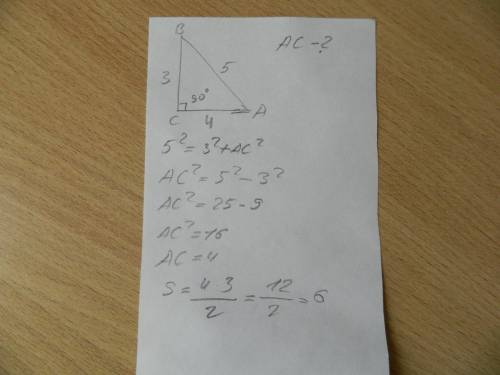 B
AC - ?
3
5
90°
C
4
A
5² = 3² + AC²
AC² = 5² - 3²
AC² = 25 - 9
AC² = 16
AC = 4
S = 4 3 / 2 = 12 / 2 = 6